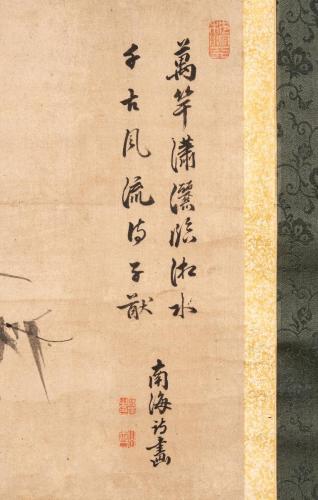 萬竿瀟灑臨湘水
千古風流待子猷
南海詩畫